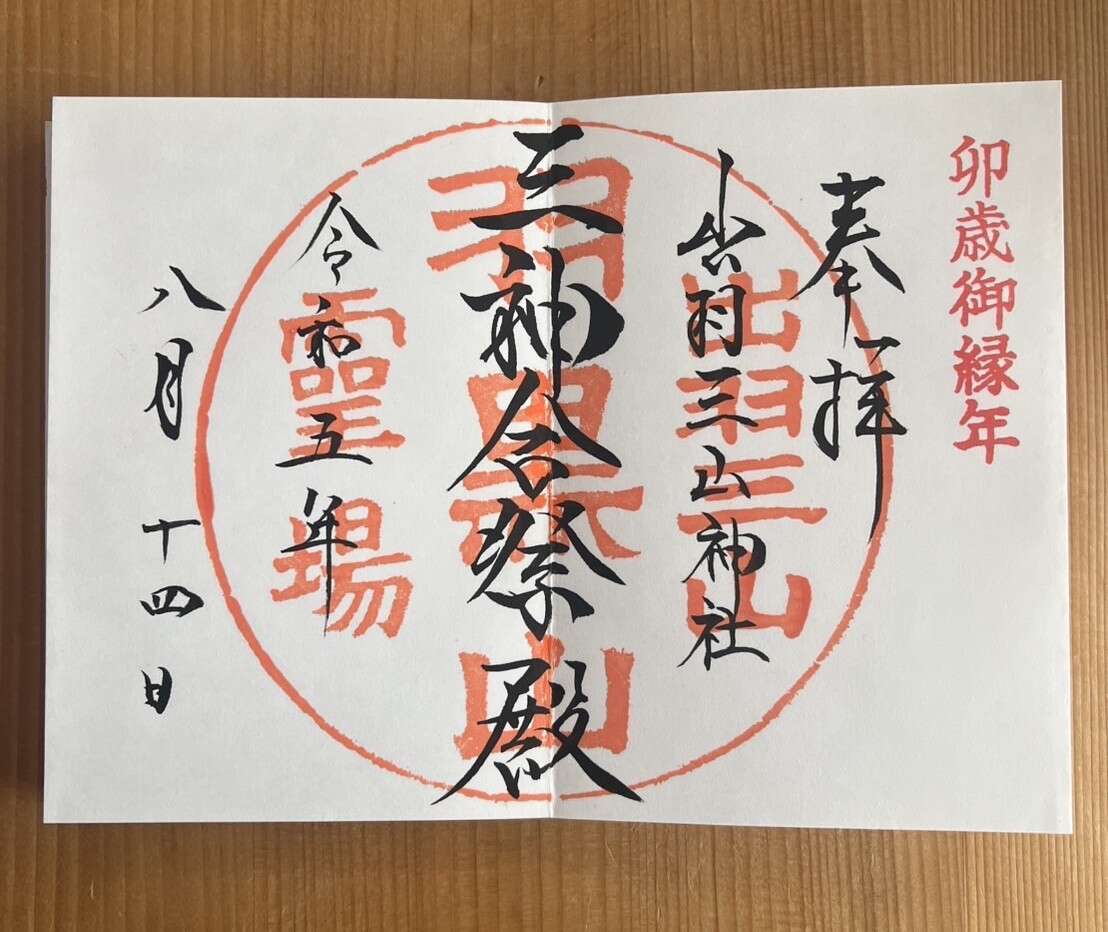 卯歳御縁年
奉拝
出羽三山神社
出羽三山
三神合祭殿
羽黒山
令和五年
霊場
八月十四日